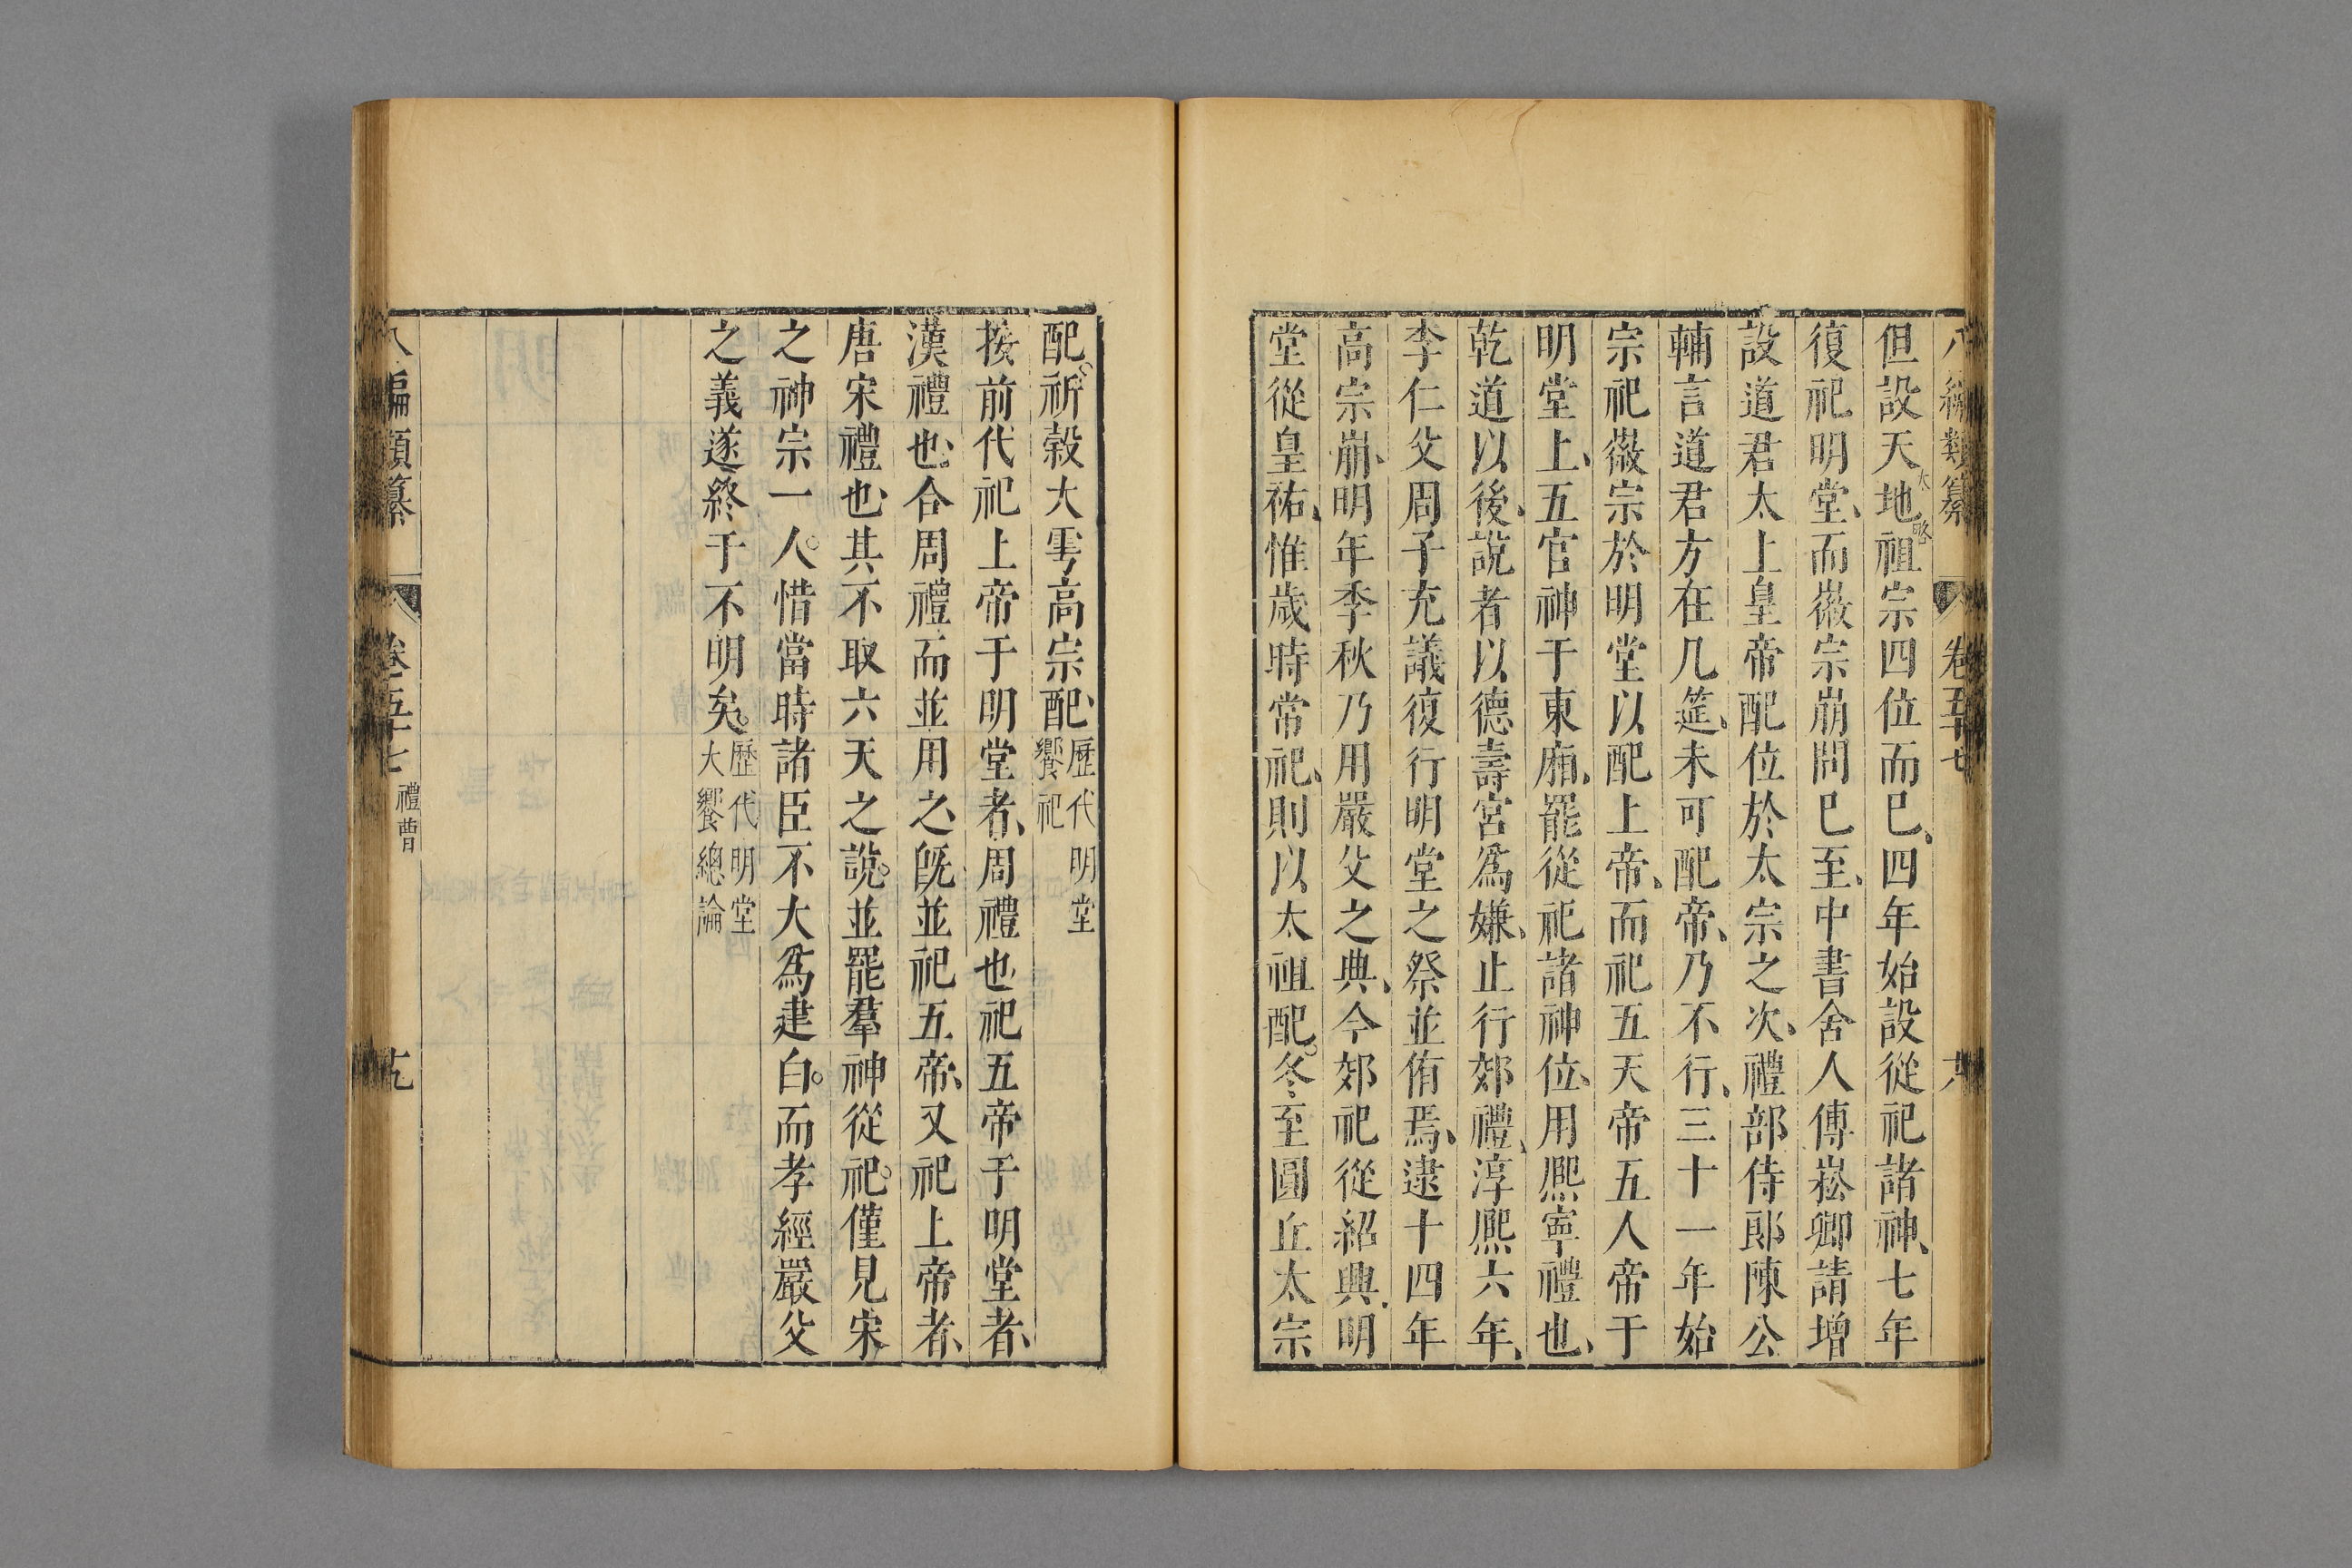 八編類纂 卷五十七 六
但設天地祖宗四位而巳、四年始設從祀諸神、七年
太略
復祀明堂、而徽宗崩問巳至、中書舍人傅崧卿請增
設道君太上皇帝配位於太宗之次、禮部侍郎陳公
輔言道君方在几筵、未可配帝、乃不行、三十一年始
宗祀徽宗於明堂以配上帝、而祀五天帝五人帝于
明堂上、五官神于東廂、罷從祀諸神位、用熈寧禮也、
乾道以後、說者以德壽宮爲嫌、止行郊禮、淳熈六年、
李仁父周子充議復行明堂之祭並侑焉、逮十四年
高宗崩、明年季秋乃用嚴父之典、今郊祀從紹興、明
堂從皇祐、惟歲時常祀、則以太祖配。冬至圓丘太宗
配。祈穀大雩高宗配、歷代明堂
饗祀
按前代祀上帝于明堂者、周禮也祀五帝于明堂者、
漢禮也、合周禮而並用之、旣並祀五帝、又祀上帝者、
唐宋禮也、其不取六天之說。並罷羣神從祀。僅見宋
之神宗一人。惜當時諸臣不大爲建白。而孝經嚴父
之義遂終于不明矣。歷代明堂
大饗總論
八編類纂 卷五十七 禮曹